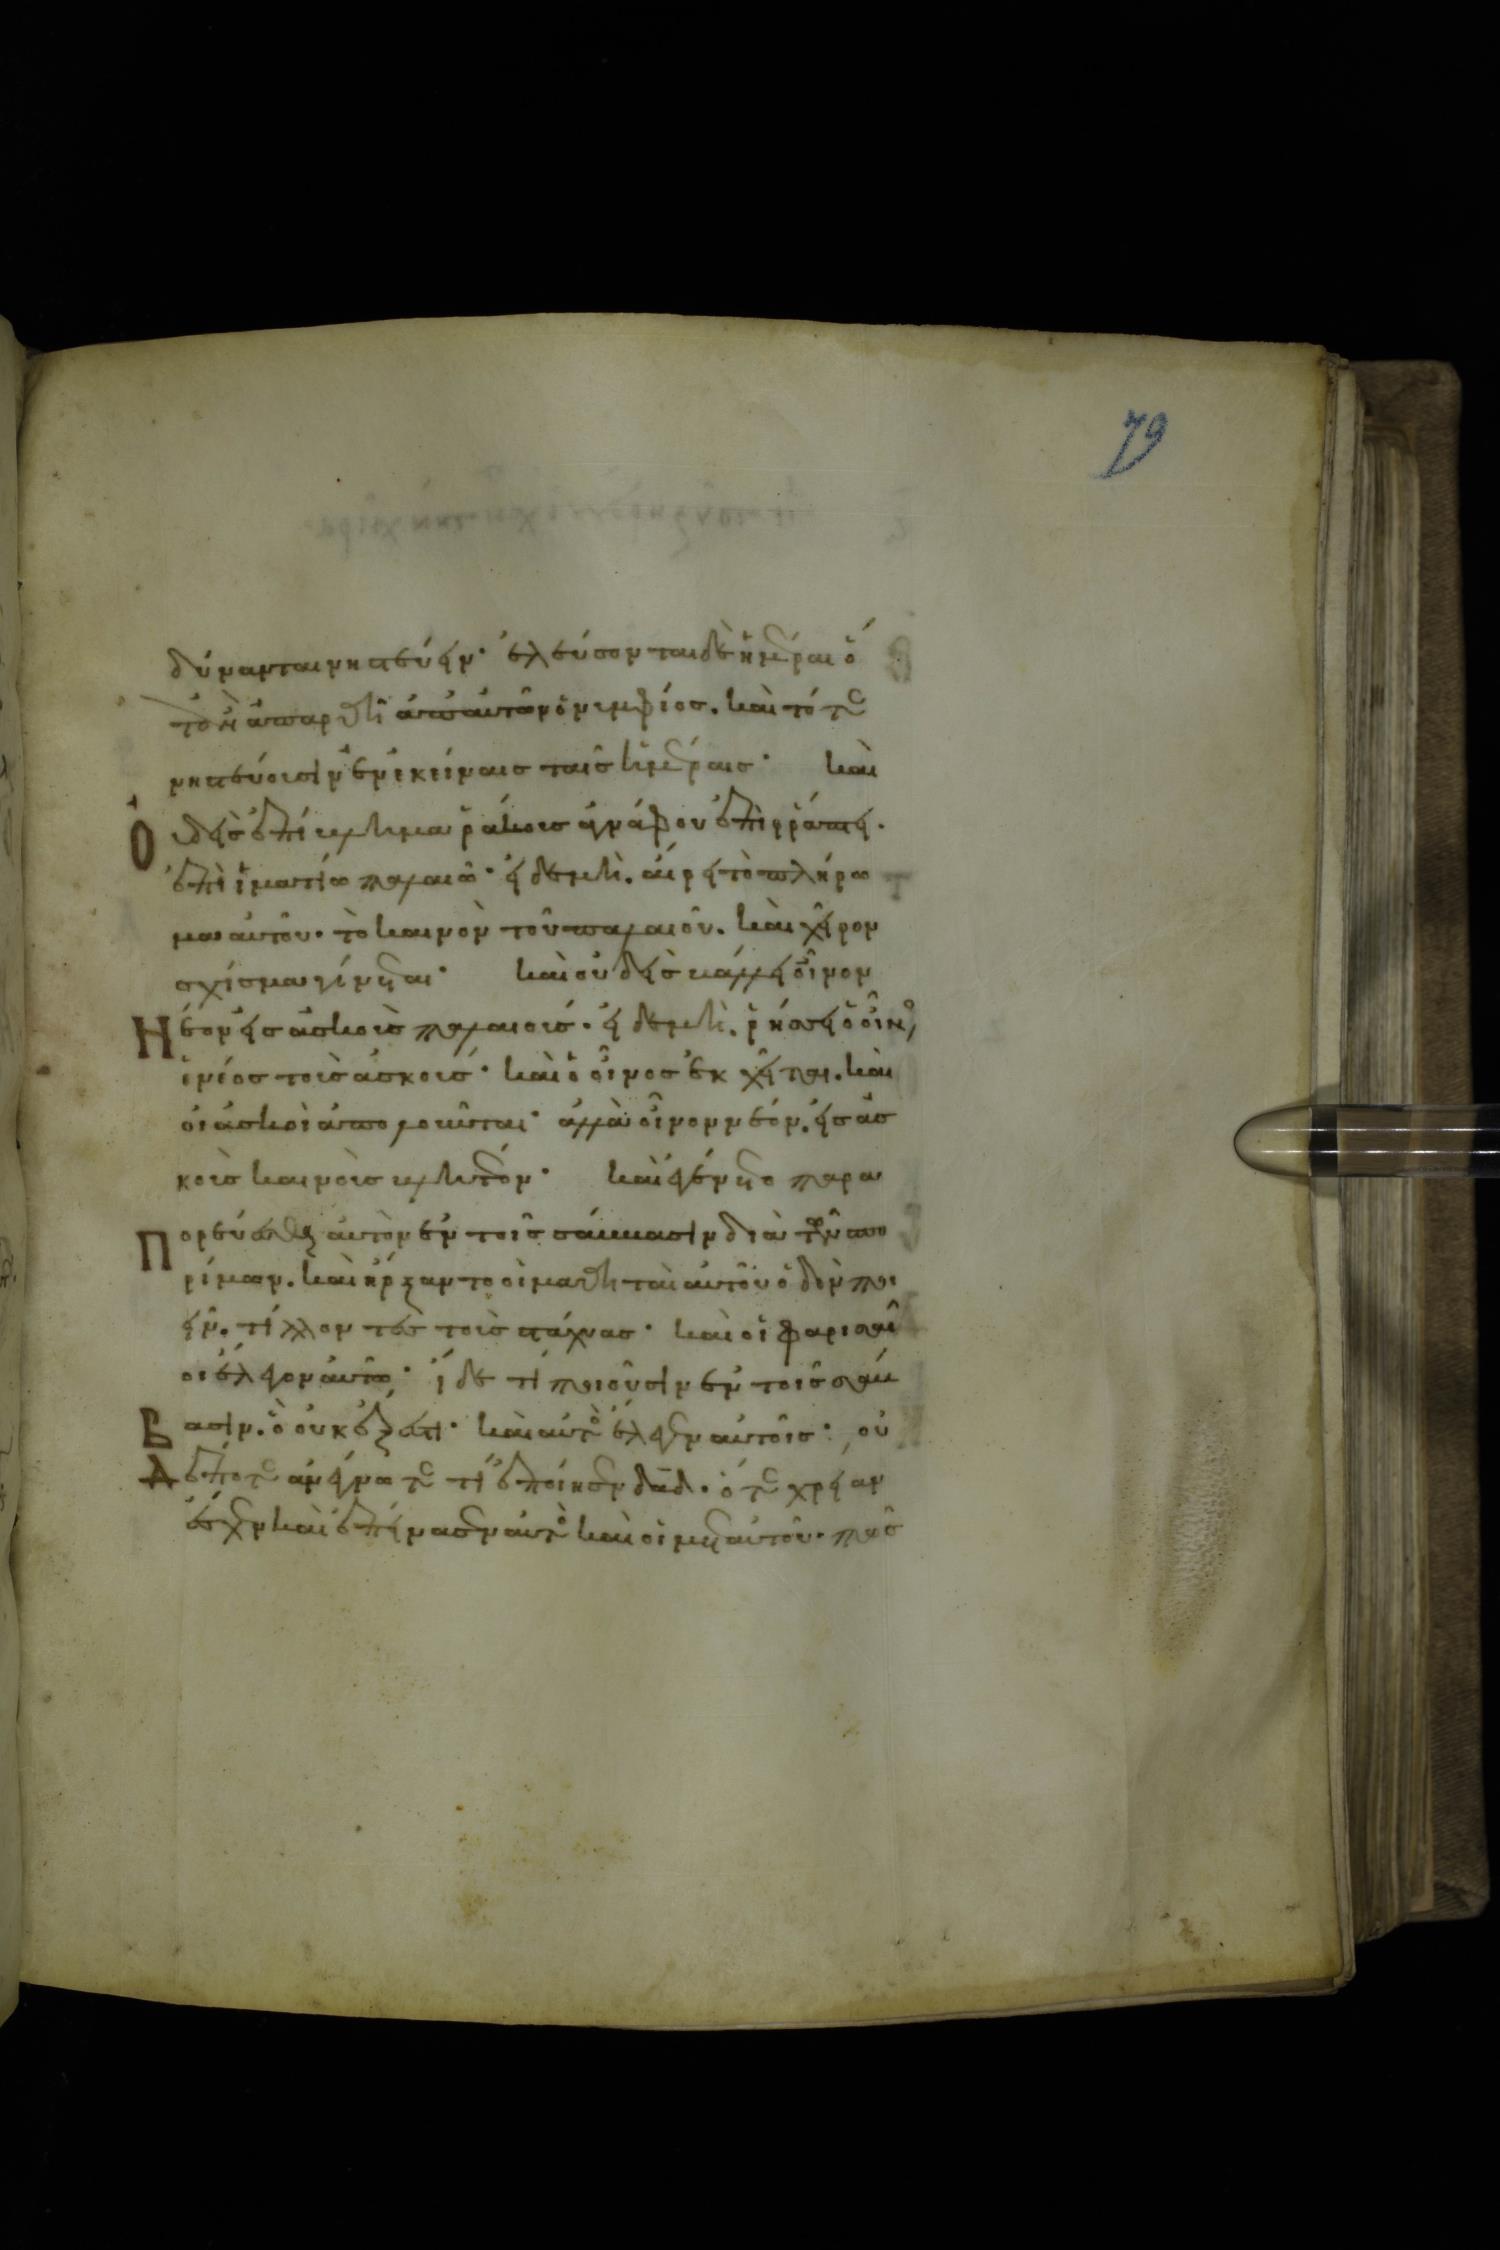 79
δύνανται νηστεύειν· ἐλεύσονται δὲ ἡμέραι ὅ
τὰν ἀπαρθῆ ἀπ' αὐτῶν ὁ νυμφίος. καὶ τότε
νηστεύουσιν ἐν ἐκείναις ταῖς ἡμέραις· καὶ
Οὐδεὶς ἐπίβλημα ῥάκους ἀγνάφου ἐπιρράπτει.
ἐπὶ ἱματίω παλαιῶ· εἰ δὲ μὴ. αἴρει τὸ πλήρω
μα αὐτοῦ. τὸ καινὸν τοῦ παλαιοῦ. καὶ χεῖρον
σχίσμα γίνεται· καὶ οὐδεὶς βάλλει οἶνον
Νέον εἰς ἀσκοὺς παλαιούς. εἰ δὲ μὴ. ῥήσσει ὁ οἶνος
ὁ νέος τοὺς ἀσκούς· καὶ ὁ οἶνος ἐκχεῖται. καὶ
οἱ ἀσκοὶ ἀπολοῦνται· ἀλλὰ οἶνον νέον. εἰς ἀσ
κοὺς καινοὺς βλητέον· καὶ ἐγένετο παρα
Πορεύεσθαι αὐτὸν ἐν τοῖς σάββασιν διὰ τῶν σπο
ρίμων. καὶ ἤρξαντο οἱ μαθηταὶ αὐτοῦ ὁδὸν ποι
εῖν. τίλλοντες τοὺς στάχυας· καὶ οἱ φαρισαῖ
οι ἔλεγον αὐτῶ· ἴδε τί ποιοῦσιν ἐν τοῖς σάβ
Βασιν. ὃ οὐκ ἔξεστι· καὶ αὐτὸς ἔλεγεν αὐτοῖς· οὐ
Δέποτε ἀνέγνωτε τί ἐποίησεν δαδ. ὅτε χρείαν
ἔσχεν καὶ ἐπείνασεν αὐτὸς καὶ οἱ μετ αὐτοῦ. πῶς